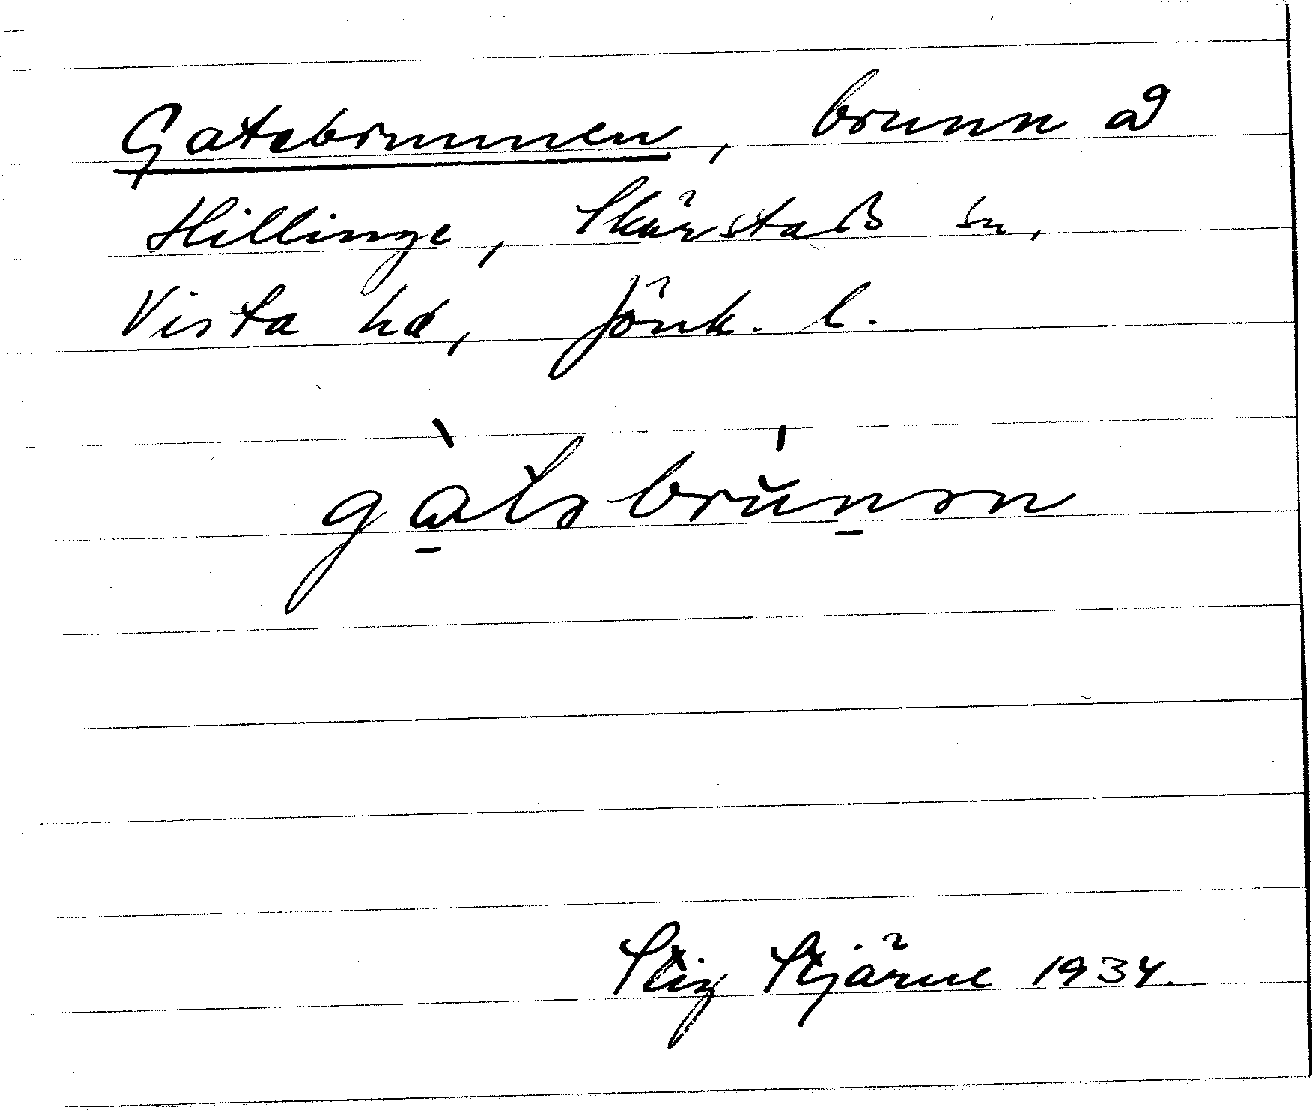 Gatebrunnen, brunn å
Hillinge, Skärstads sn,
Vista hd, Jönk. l.
gàtəbrunən
Stig Stjärne 1934.